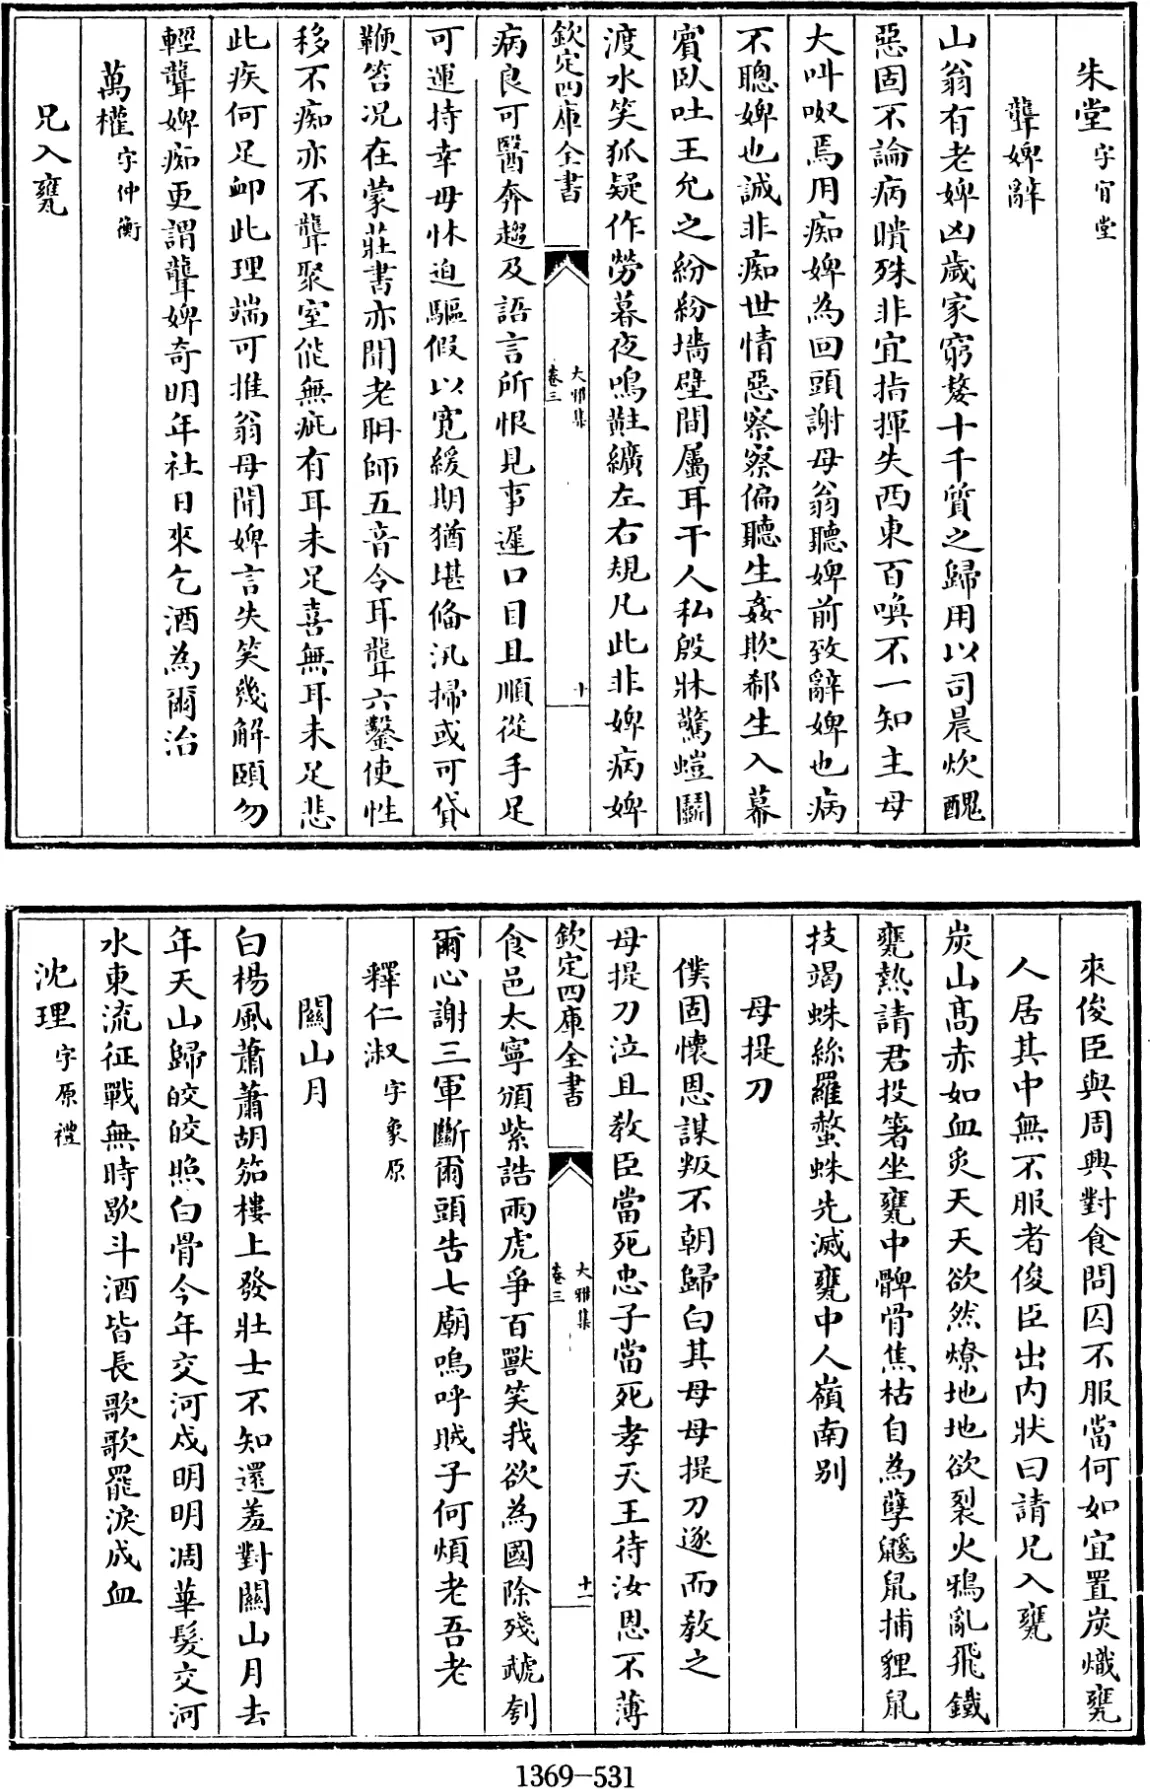 朱堂字甯堂
聾婢辭
山翁有老婢凶歲家窮嫠十千質之歸用以司晨炊醜
惡固不論病聵殊非宜指揮失西東百喚不一知主母
大叫呶焉用痴婢為回頭謝母翁聽婢前致辭婢也病
不聰婢也誠非痴世情惡察察偏聽生姦欺郗生入幕
賓臥吐王允之紛紛墻壁間屬耳干人私殷牀驚螘鬭
渡水笑狐疑作勞暮夜鳴黈纊左右規凡此非婢病婢
欽定四庫全書
大雅集
卷三
十
病良可醫奔趨及語言所恨見事遲口目且順從手足
可運持幸毋怵迫驅假以寬緩期猶堪俻汛掃或可貸
鞭笞况在蒙莊書亦聞老耼師五音令耳聾六鑿使性
移不痴亦不聾聚室能無疵有耳未足喜無耳未足悲
此疾何足卹此理端可推翁母聞婢言失笑幾解頤勿
輕聾婢痴更謂聾婢奇明年社日來乞酒為爾治
萬權字仲衡
兄入甕
來俊臣與周興對食問囚不服當何如宜置炭熾甕
人居其中無不服者俊臣出內狀曰請兄入甕
炭山髙赤如血炙天天欲然燎地地欲裂火鴉亂飛鐵
甕熱請君投箸坐甕中髀骨焦枯自為孽鼷鼠捕貍鼠
技竭蛛絲羅螯蛛先滅甕中人嶺南别
母提刀
僕固懷恩謀叛不朝歸白其母母提刀逐而教之
母提刀泣且教臣當死忠子當死孝天王待汝恩不薄
欽定四庫全書
大雅集
卷三
十一
食邑太寧頒紫誥兩虎爭百獸笑我欲為國除殘虣刳
爾心謝三軍斷爾頭告七廟嗚呼賊子何煩老吾老
釋仁淑字象原
關山月
白楊風蕭蕭胡笳樓上發壯士不知還羞對關山月去
年天山歸皎皎照白骨今年交河戍明明凋華髮交河
水東流征戰無時歇斗酒皆長歌歌罷淚成血
沈理字原禮
1369-531